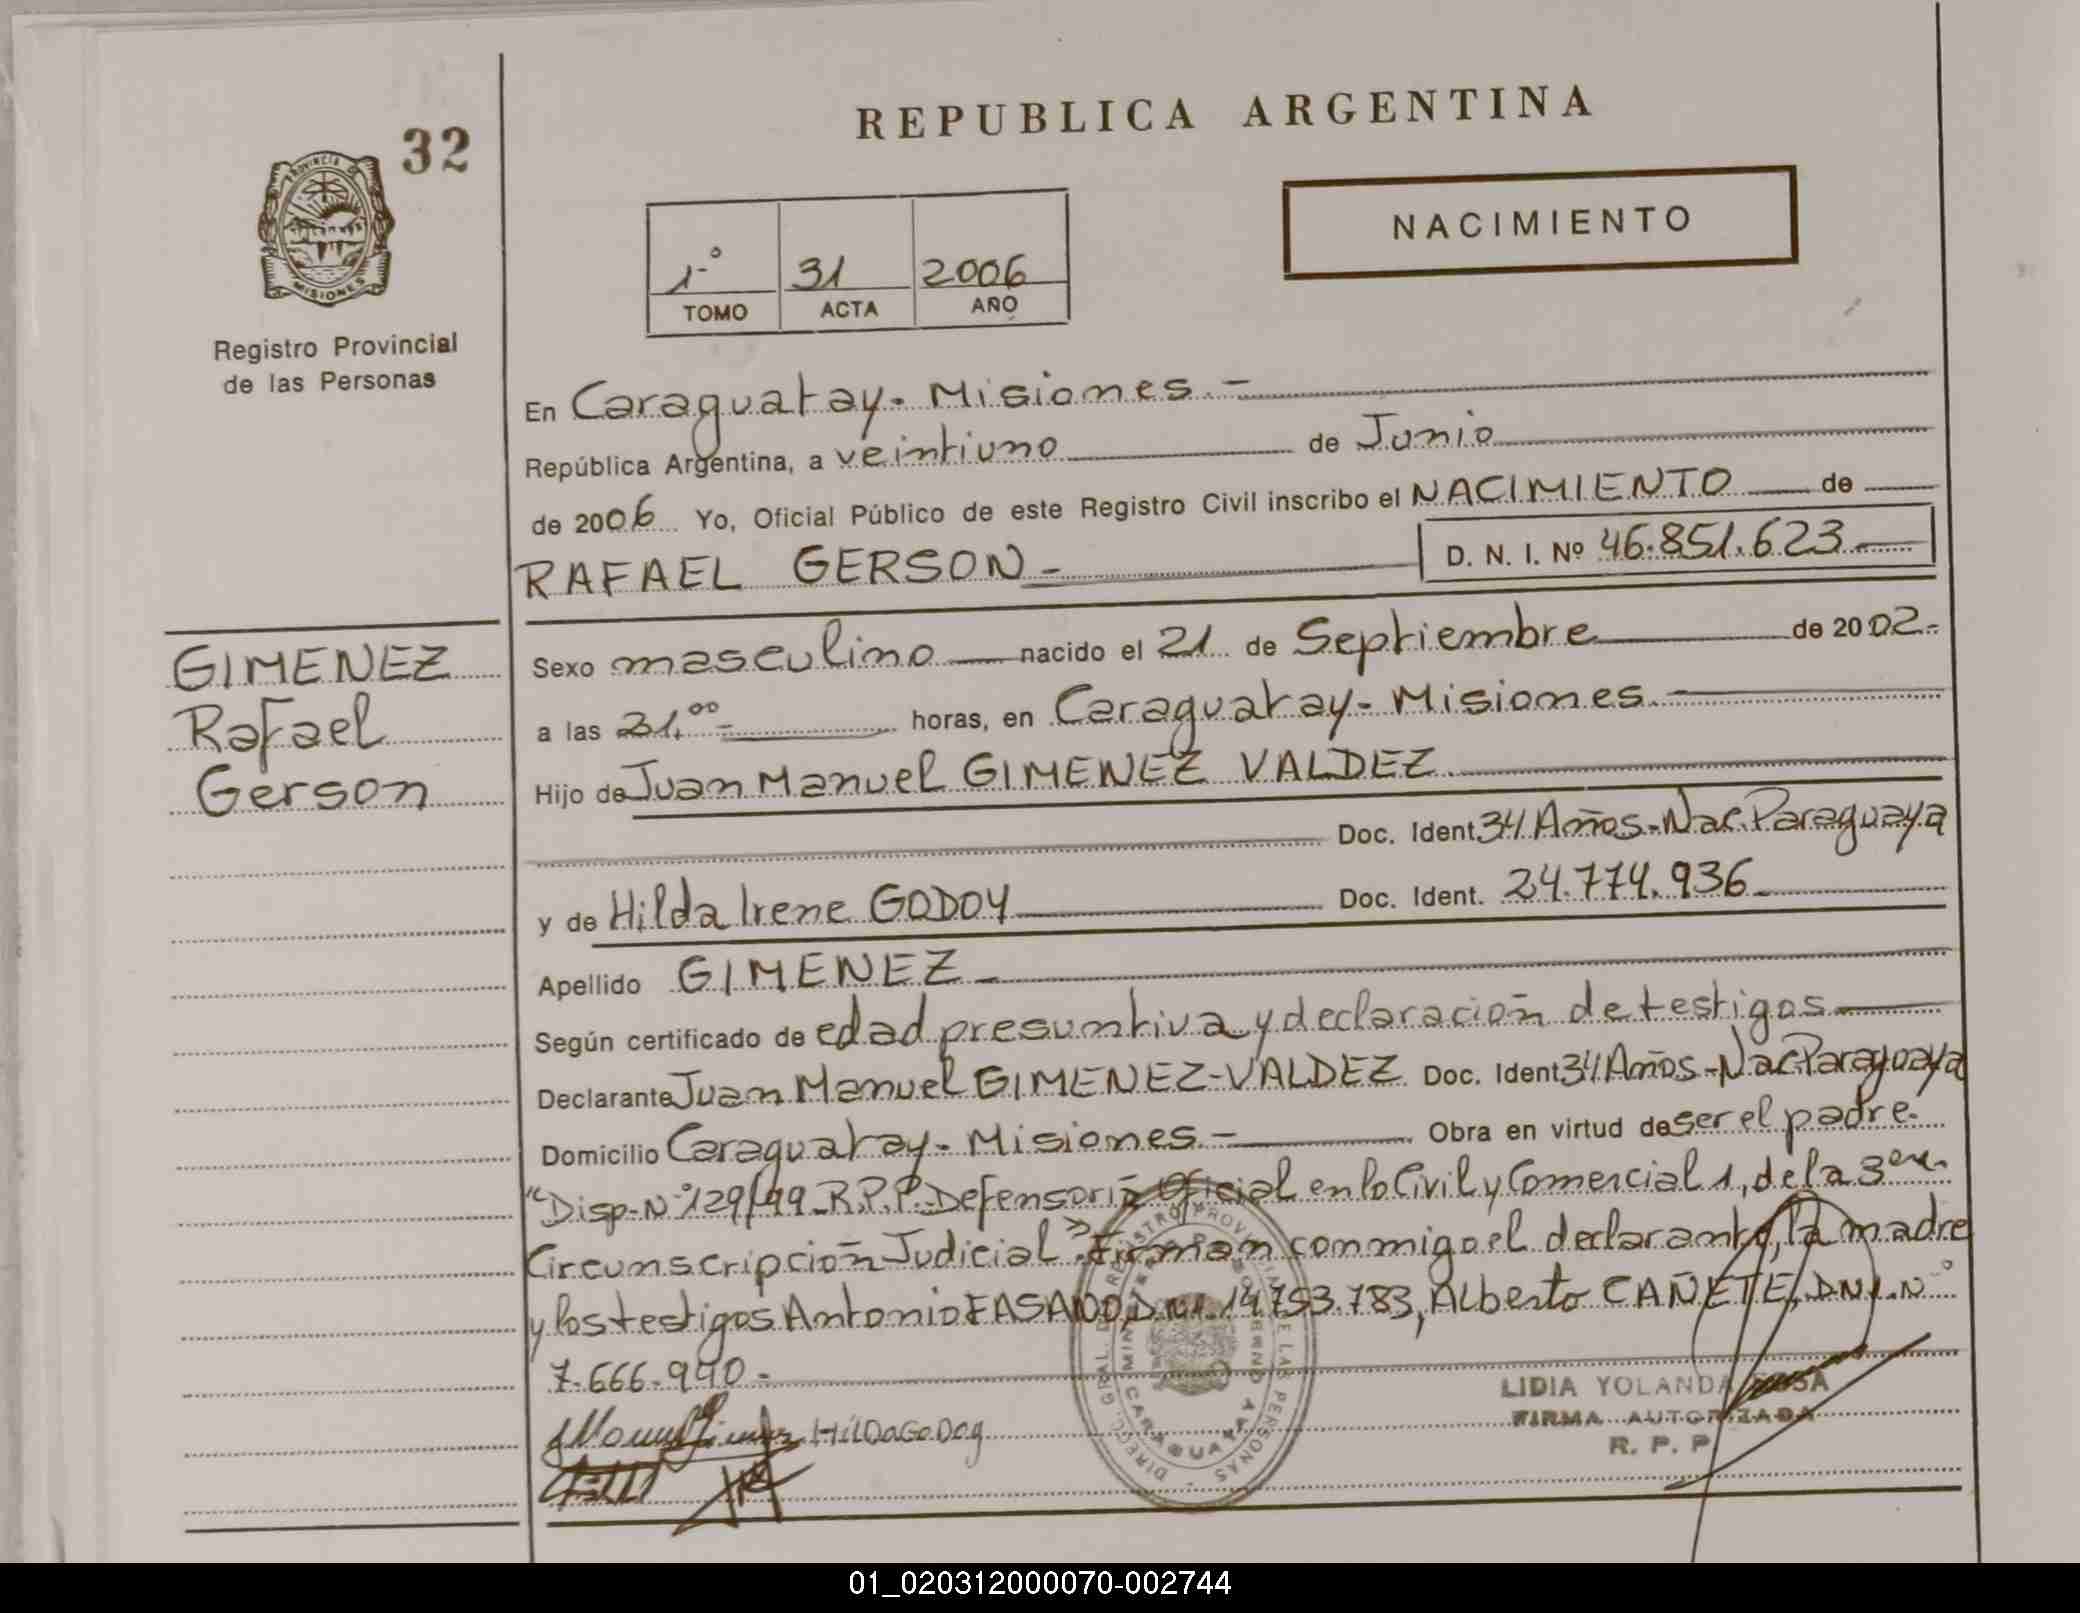 REPUBLICA ARGENTINA
32
PROVINCIA DE
MISIONES
NACIMIENTO
1º 31 2006
TOMO ACTA AÑO
Registro Provincial
de las Personas
En Caraguatay - Misiones. -
República Argentina, a veintiuno de Junio
de 2006 Yo, Oficial Público de este Registro Civil inscribo el NACIMIENTO de
RAFAEL GERSON - D. N. I. Nº 46.851.623
GIMENEZ
Rafael
Gerson
Sexo masculino nacido el 21 de Septiembre de 2002.-
a las 21.00- horas, en Caraguatay - Misiones.
Hijo de Juan Manuel GIMENEZ VALDEZ
Doc. Ident. 34 Años - Nac. Paraguaya
y de Hilda Irene GODOY Doc. Ident. 24.774.936
Apellido GIMENEZ -
Según certificado de edad presuntiva y declaración de testigos
Declarante Juan Manuel GIMENEZ - VALDEZ Doc. Ident. 34 Años - Nac. Paraguaya
Domicilio Caraguatay - Misiones. - Obra en virtud de ser el padre.
"Disp. Nº 129/99 - R.P.P. - Defensoria Oficial en lo Civil y Comercial 1, de la 3era.
Circunscripción Judicial". Firman conmigo el declarante, la madre
y los testigos Antonio FASANO, D.N.I. 14.753.783, Alberto CAÑETE, D.N.I. Nº
7.666.940 -
HilDa GoDoy
LIDIA YOLANDA
FIRMA AUTORIZADA
R. P. P
01_020312000070-002744